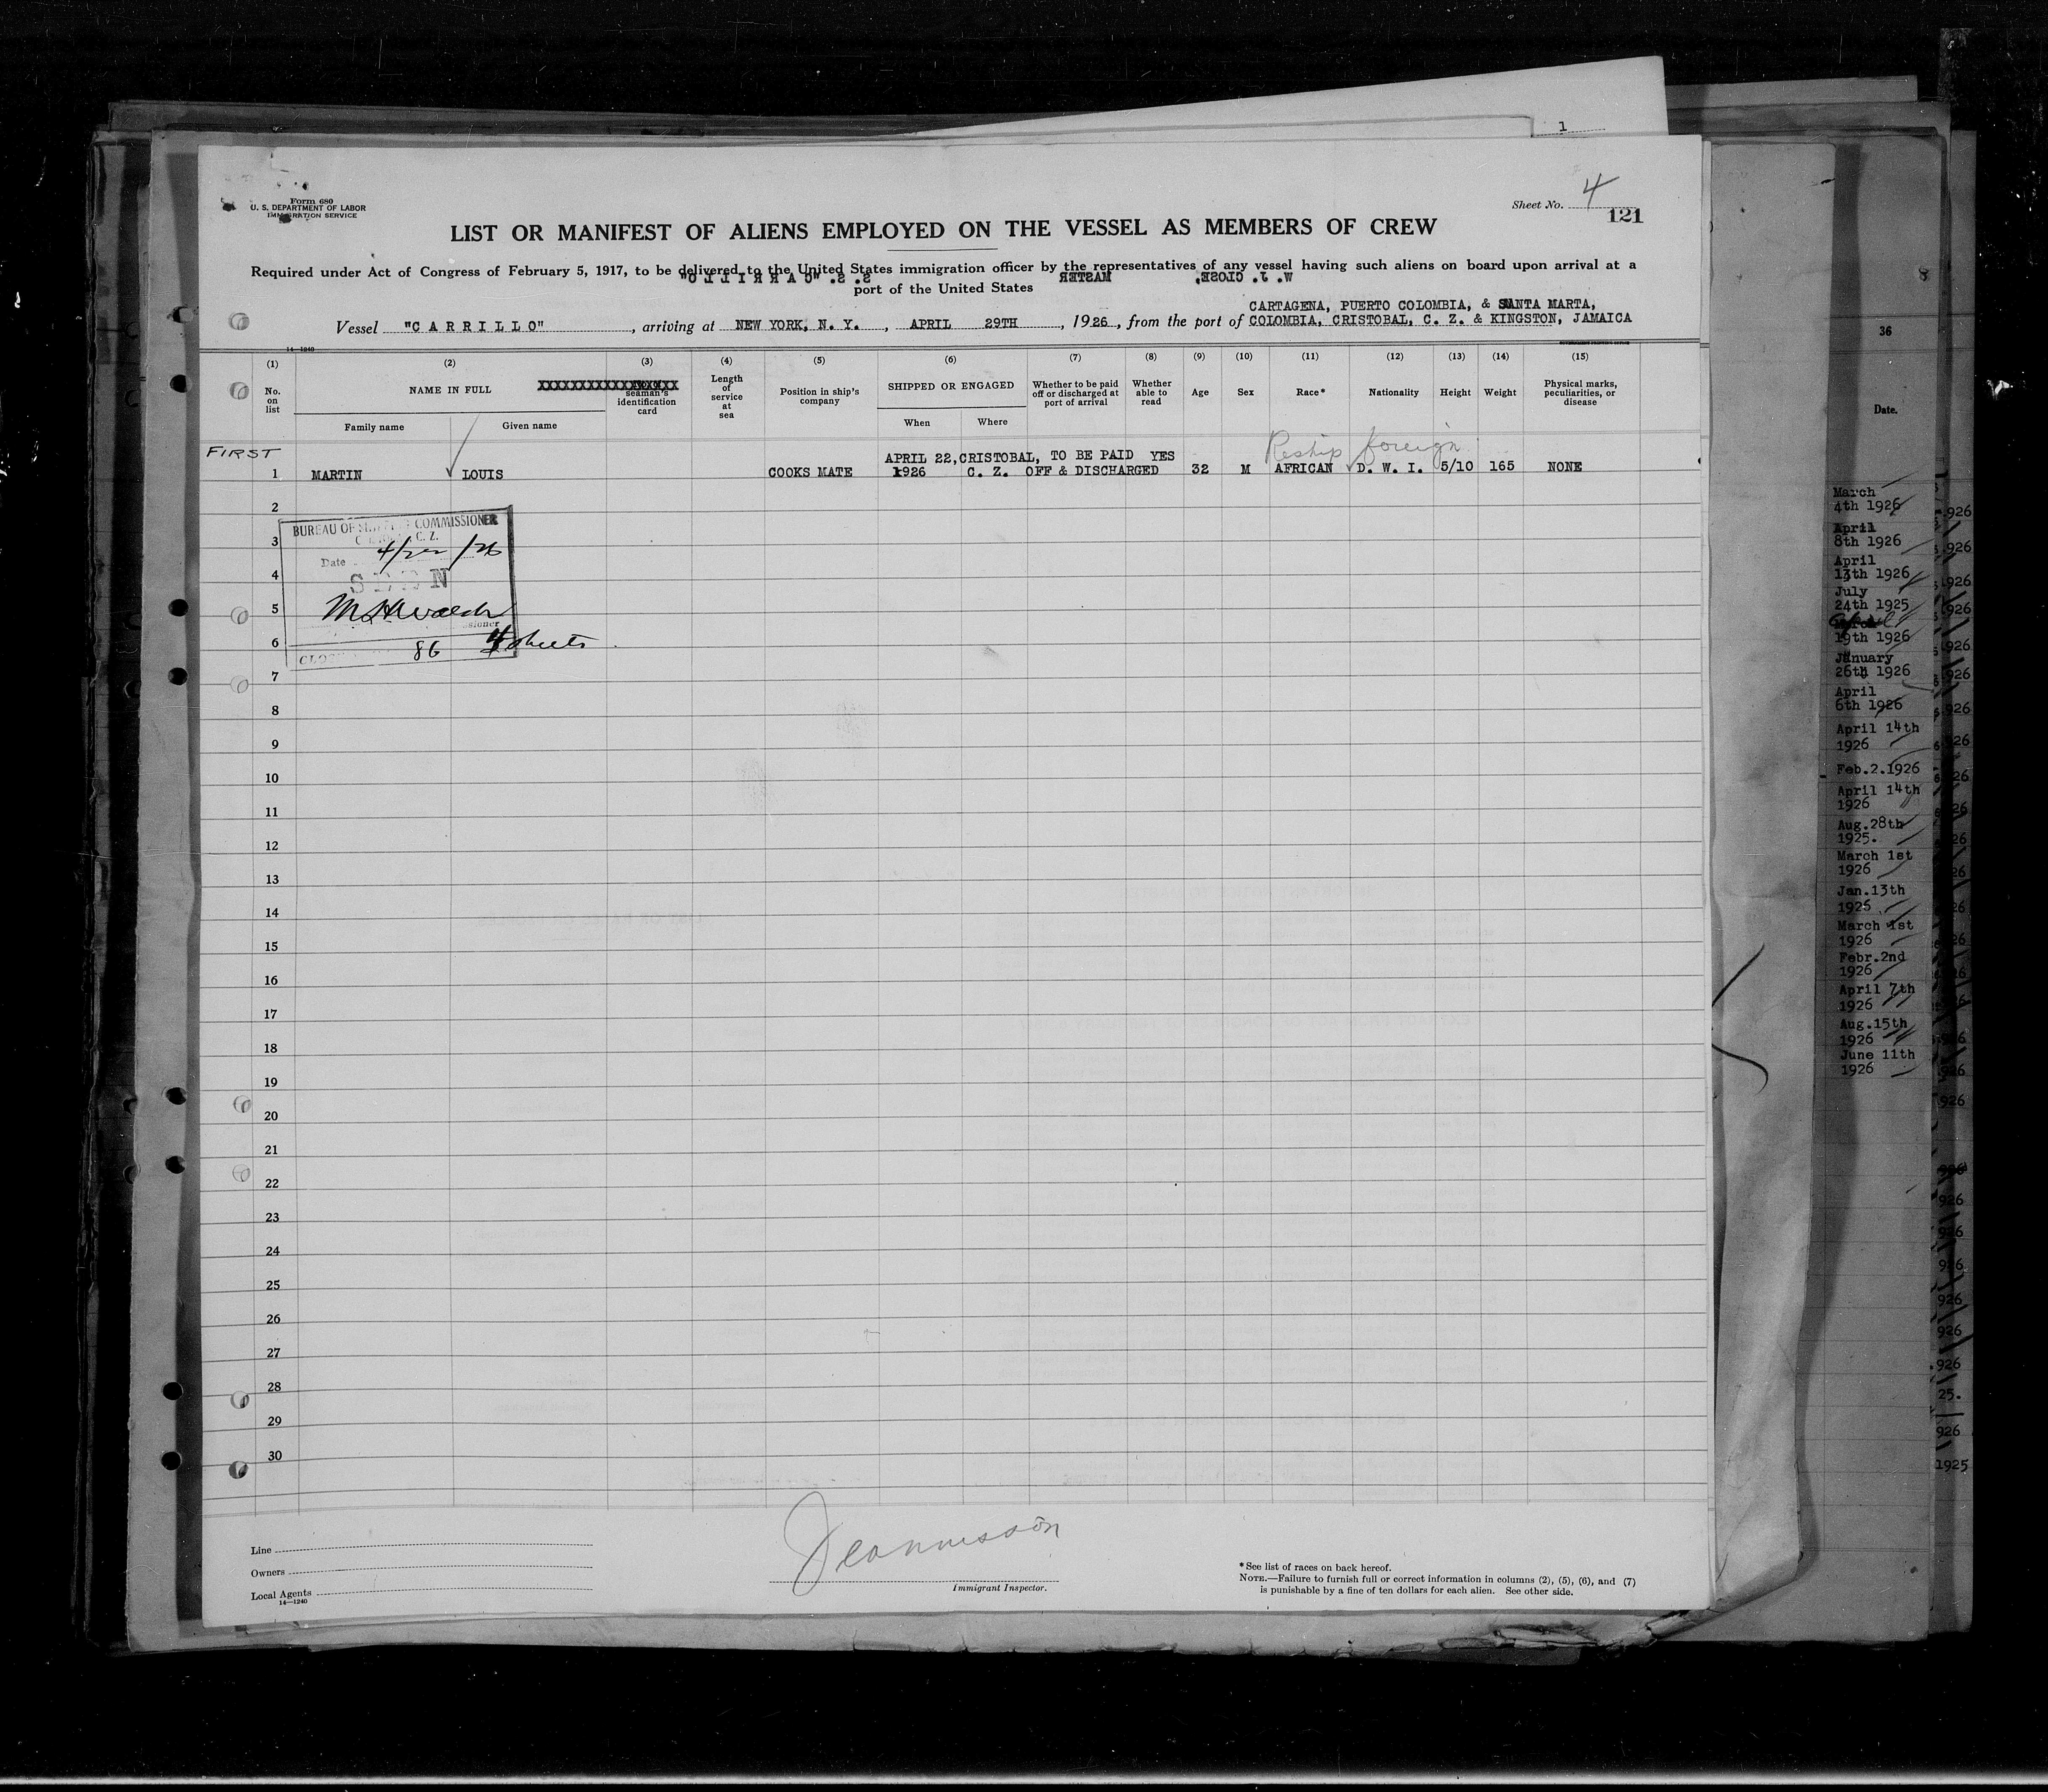 1
Form 680
U. S. DEPARTMENT OF LABOR
IMMIGRATION SERVICE
Sheet No. 4
121
LIST OR MANIFEST OF ALIENS EMPLOYED ON THE VESSEL AS MEMBERS OF CREW
Required under Act of Congress of February 5, 1917, to be delivered to the United States immigration officer by the representatives of any vessel having such aliens on board upon arrival at a
S. S. "CARRILLO" W. J. CLOSE, MASTER
port of the United States
CARTAGENA, PUERTO COLOMBIA, & SANTA MARTA,
Vessel "CARRILLO", arriving at NEW YORK, N. Y., APRIL 29TH, 1926, from the port of COLOMBIA, CRISTOBAL, C. Z. & KINGSTON, JAMAICA
14-1240
(1) (2) (3) (4) (5) (6) (7) (8) (9) (10) (11) (12) (13) (14) (15)
No. on list
NAME IN FULL
Family name
Given name
XXXXXXXXXXXXXXXXXX
seaman's identification card
Length of service at sea
Position in ship's company
SHIPPED OR ENGAGED
When
Where
Whether to be paid off or discharged at port of arrival
Whether able to read
Age
Sex
Race*
Nationality
Height
Weight
Physical marks, peculiarities, or disease
Reship foreign
FIRST
1 MARTIN LOUIS COOKS MATE APRIL 22, 1926 CRISTOBAL, C. Z. TO BE PAID OFF & DISCHARGED YES 32 M AFRICAN D. W. I. 5/10 165 NONE
2
3
4
5
6
7
8
9
10
11
12
13
14
15
16
17
18
19
20
21
22
23
24
25
26
27
28
29
30
BUREAU OF SHIPPING COMMISSIONER
C. Z.
Date 4/22/26
SEEN
86 4 sheets
Line
Owners
Local Agents
14-1240
Immigrant Inspector.
*See list of races on back hereof.
NOTE.—Failure to furnish full or correct information in columns (2), (5), (6), and (7)
is punishable by a fine of ten dollars for each alien. See other side.
8
36
Date.
March
4th 1926
April
8th 1926
April
13th 1926
July
24th 1925
19th 1926
January
26th 1926
April
6th 1926
April 14th
1926
Feb.2.1926
April 14th
1926
Aug.28th
1925.
March 1st
1926
Jan.13th
1925
March 1st
1926
Febr.2nd
1926
April 7th
1926
Aug.15th
1926
June 11th
1926